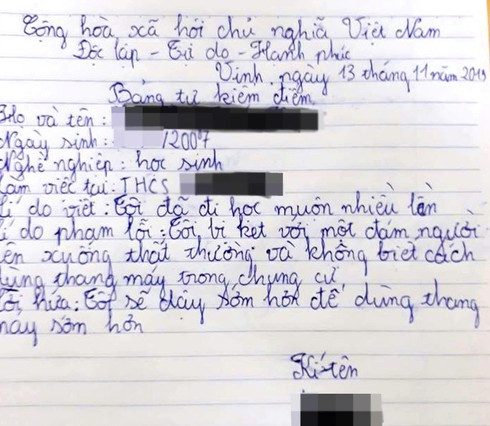 Cộng hòa xã hội chủ nghĩa Việt Nam
Độc lập - Tự do - Hạnh phúc
Vinh, ngày 13 tháng 11 năm 2019
Bảng tự kiểm điểm
Họ và tên :
Ngày sinh : /2007
Nghề nghiệp : học sinh
Làm việc tại : THCS
Lí do viết : Tôi đã đi học muộn nhiều lần
Lí do phạm lỗi : Tôi bị kẹt với một đám người
lên xuống thất thường và không biết cách
dùng thang máy trong chung cư
Lời hứa : Tôi sẽ dậy sớm hơn để dùng thang
máy sớm hơn
Kí tên